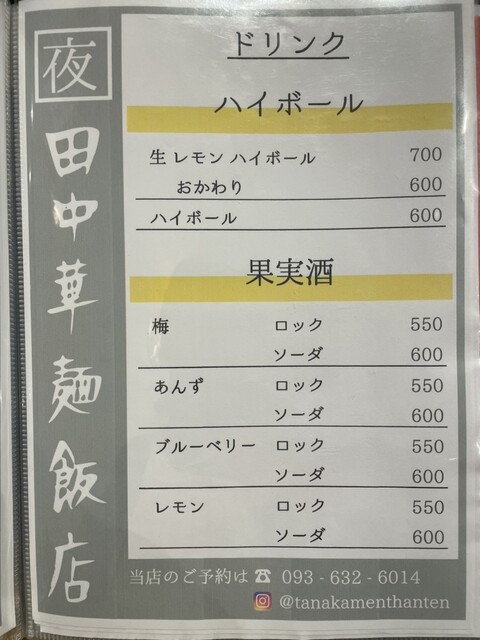 夜
田中華麺飯店
ドリンク
ハイボール
生レモンハイボール 700
おかわり 600
ハイボール 600
果実酒
梅 ロック 550
ソーダ 600
あんず ロック 550
ソーダ 600
ブルーベリー ロック 550
ソーダ 600
レモン ロック 550
ソーダ 600
当店のご予約は ☎ 093 - 632 - 6014
@tanakamenthanten